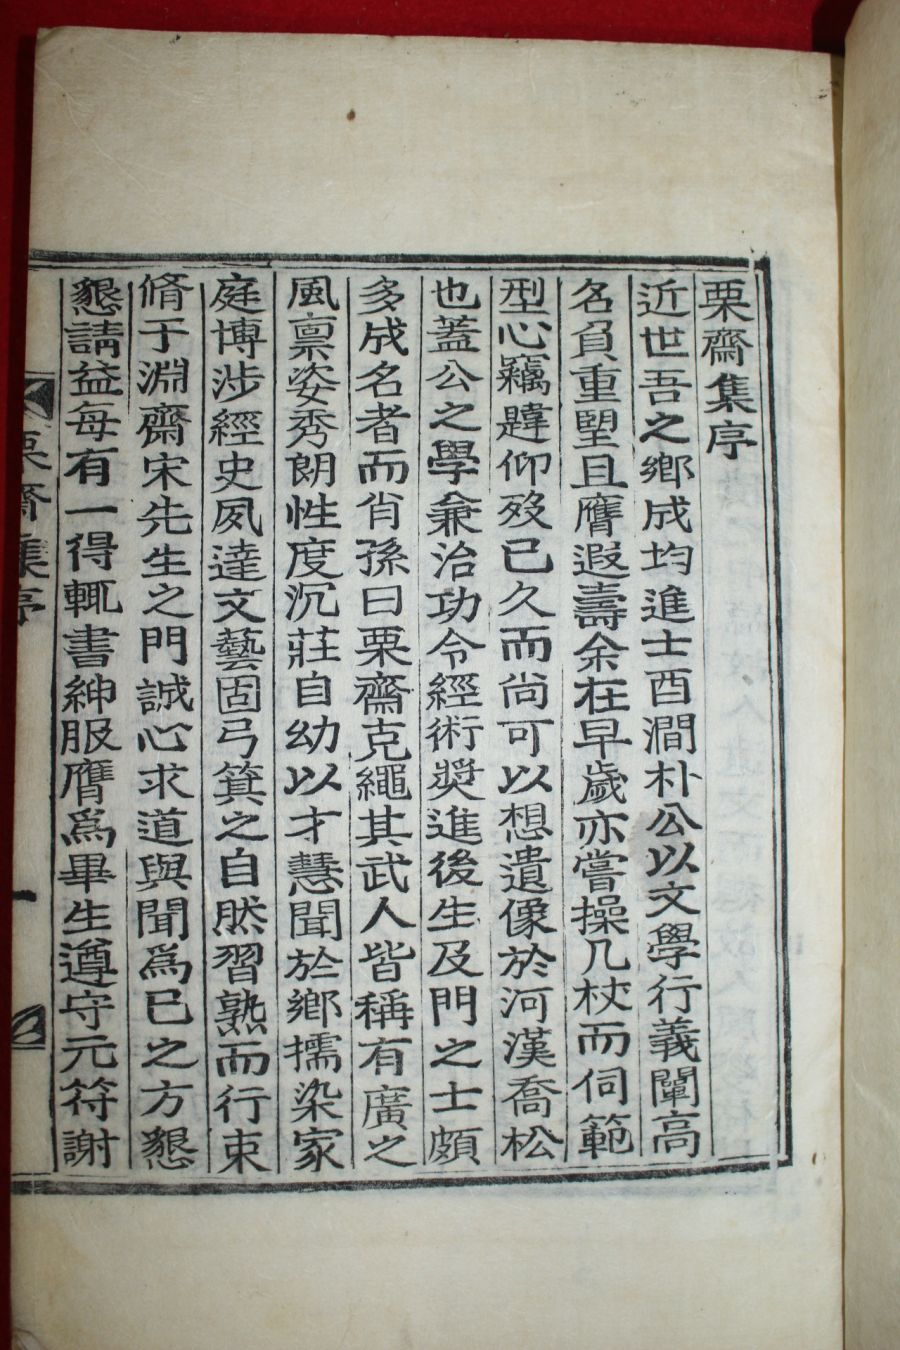 栗齋集序
近世吾之鄕成均進士酉澗朴公以文學行義闡高
名負重望且膺遐壽余在早歲亦嘗操几杖而伺範
型心竊韙仰歿已久而尚可以想遺像於河漢喬松
也蓋公之學兼治功令經術奬進後生及門之士頗
多成名者而肖孫曰栗齋克繩其武人皆稱有廣之
風禀姿秀朗性度沉莊自幼以才慧聞於鄕擩染家
庭博涉經史夙達文藝固弓箕之自然習熟而行束
脩于淵齋宋先生之門誠心求道與聞爲己之方懇
懇請益每有一得輒書紳服膺爲畢生遵守元符謝
栗齋集序 一